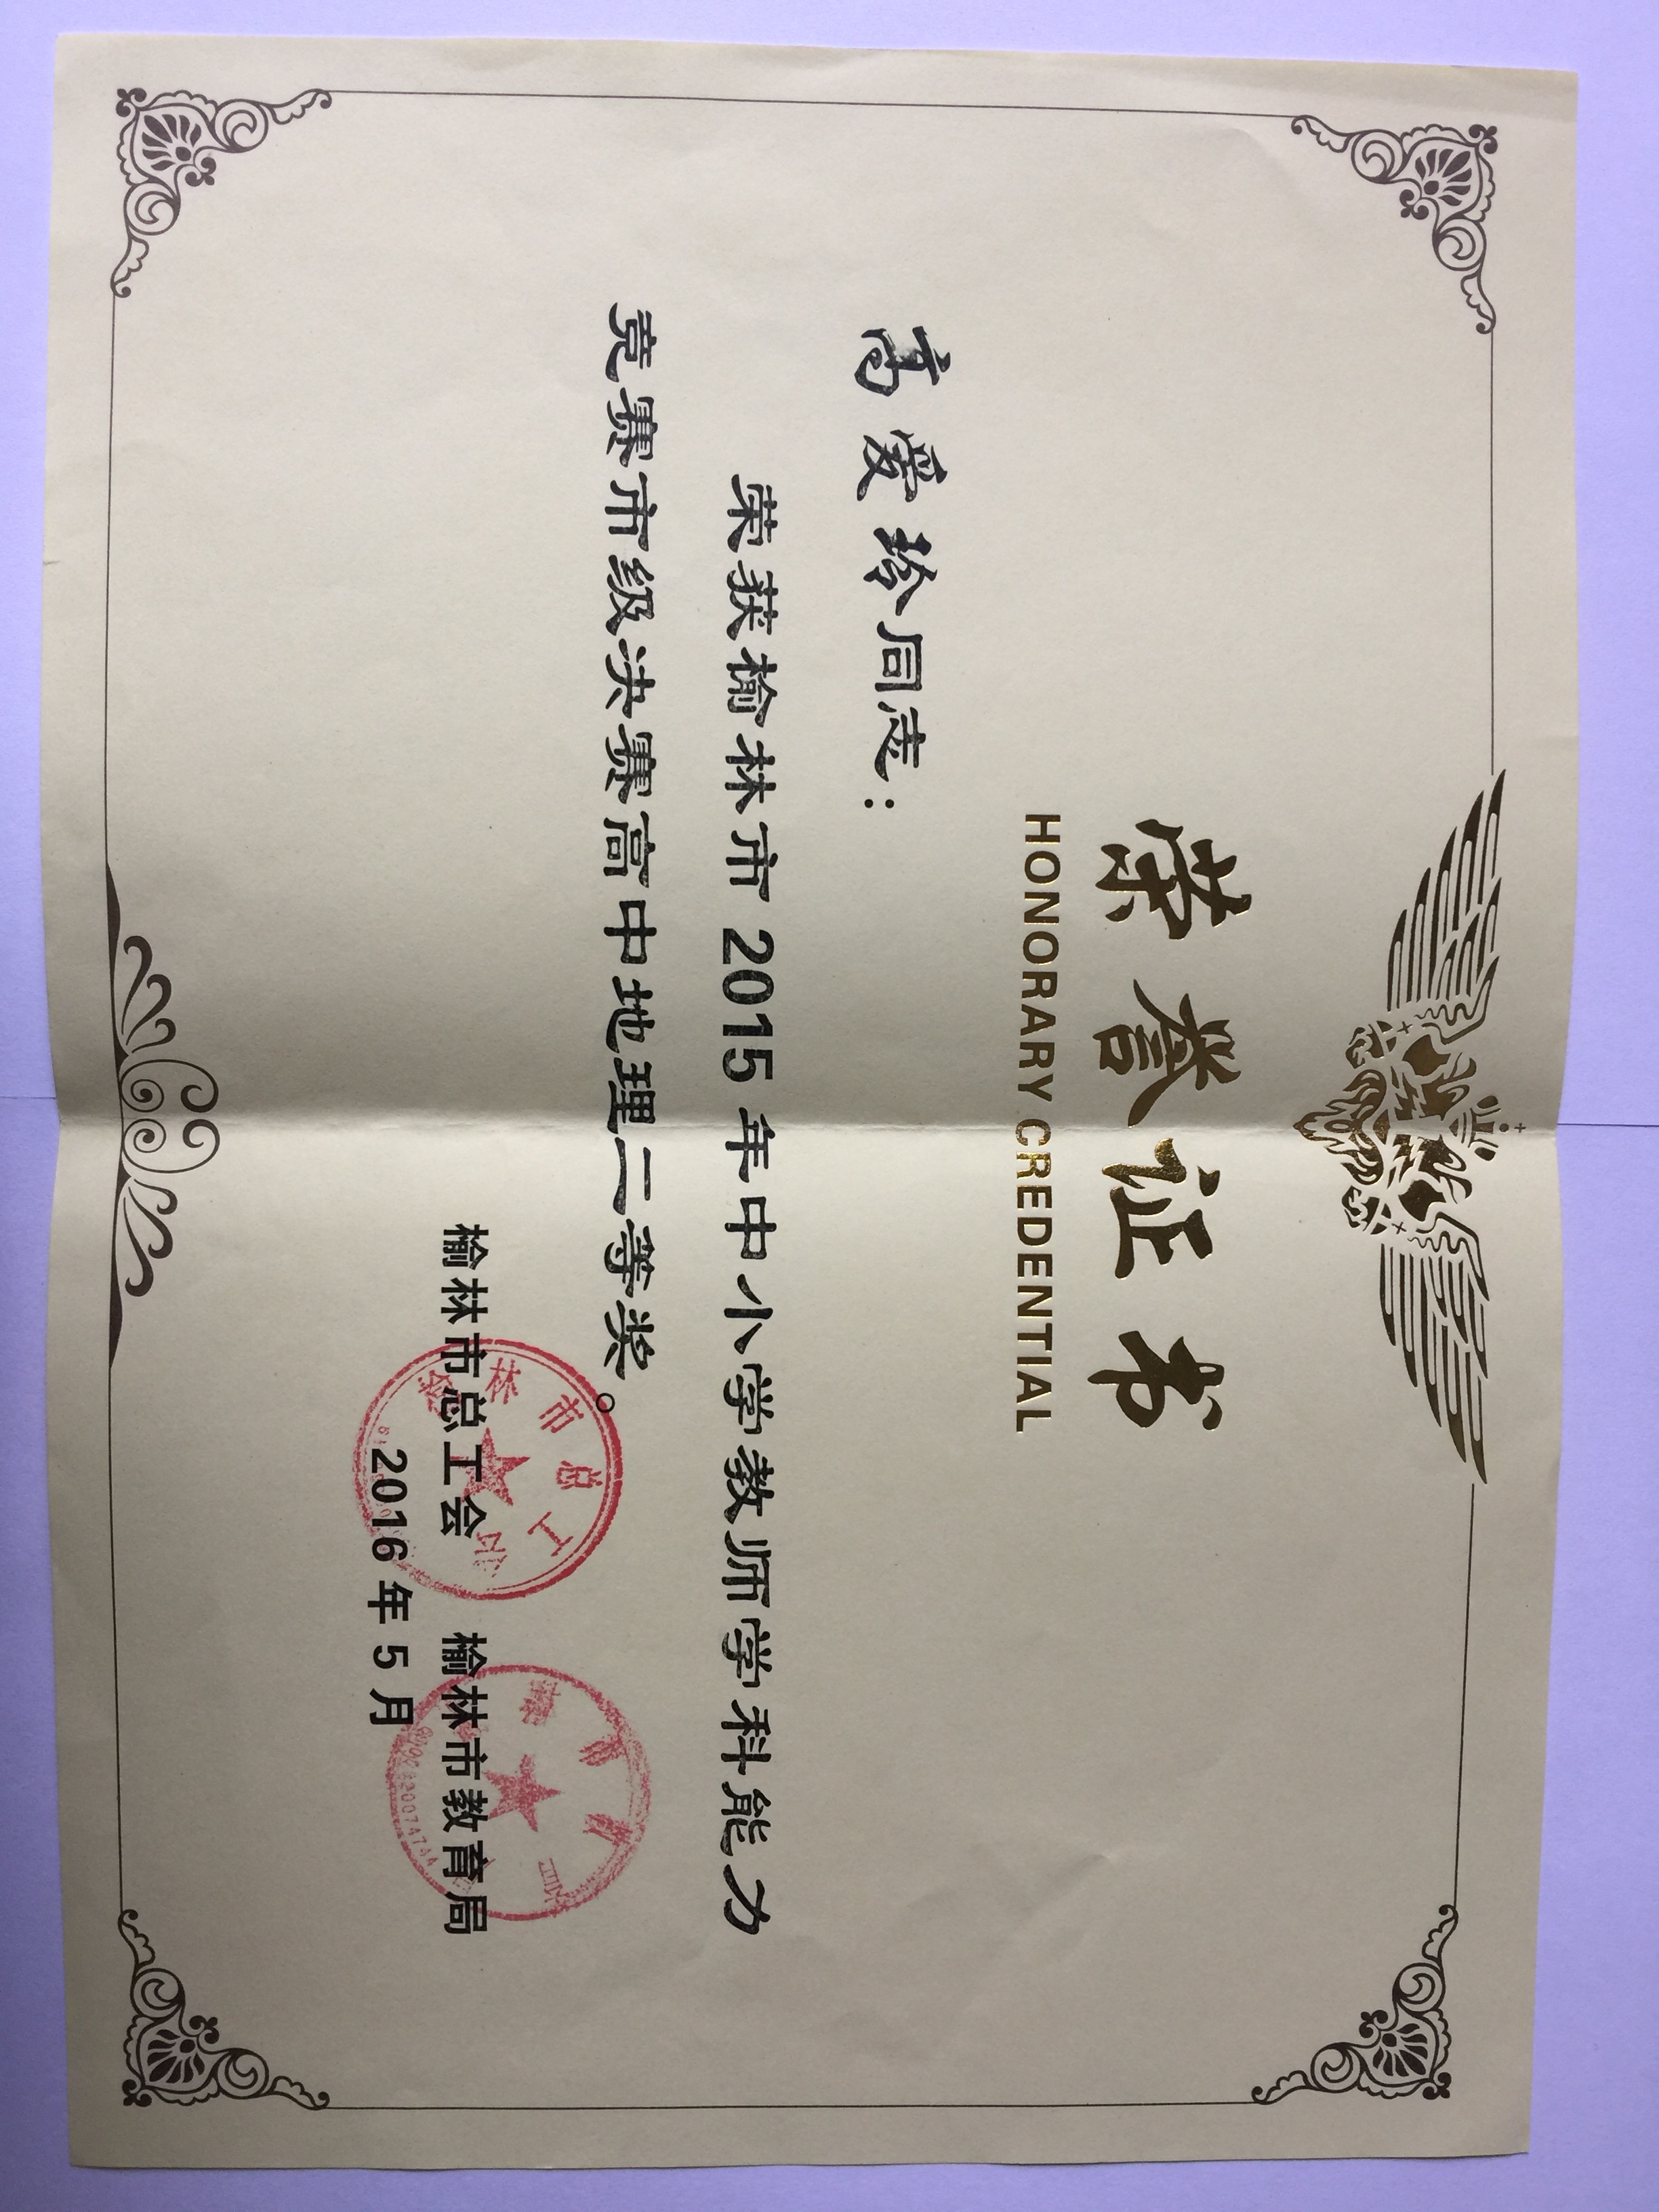 荣誉证书
HONORARY CREDENTIAL
高爱玲同志：
荣获榆林市2015年中小学教师学科能力
竞赛市级决赛高中地理二等奖。
榆林市总工会 榆林市教育局
2016年5月
林市总工